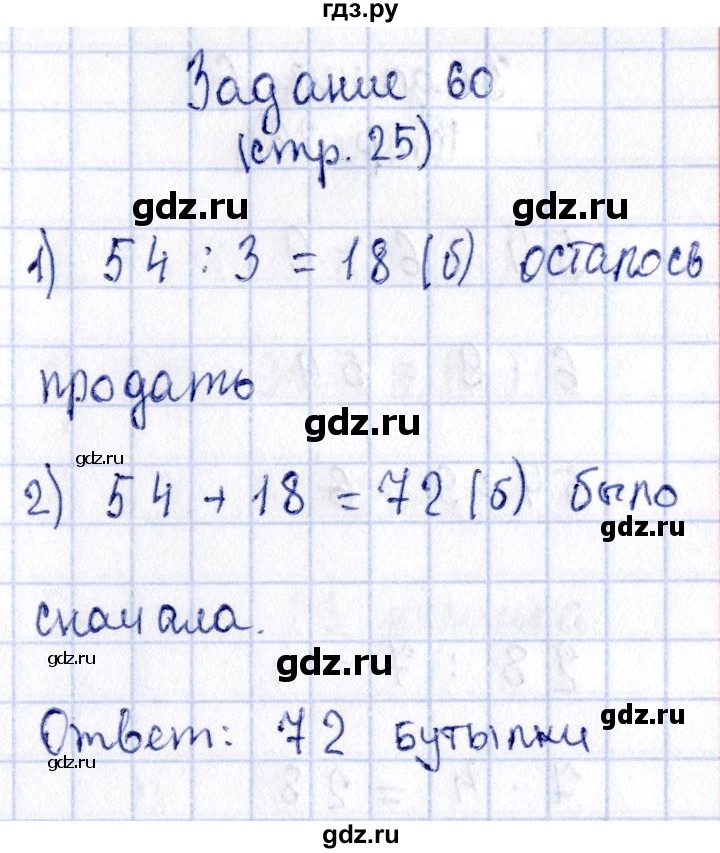 гдз.ру
Задание 60
(стр. 25)
gdz.ru gdz.ru
1) 54 : 3 = 18 (б) осталось
продать
gdz.ru
gdz.ru
2) 54 + 18 = 72 (б) было
gdz.ru
сначала.
gdz.ru
gdz.ru
Ответ: 72 бутылки
gdz.ru
gdz.ru
gdz.ru